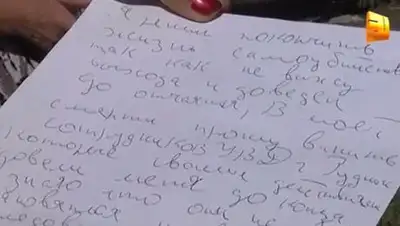 Я решил покончить
жизнь самоубийством
так как не вижу
выхода и доведен
до отчаяния, В моей
смерти прошу винить
сотрудников УВД г
которые своими действиями
довели меня до конца
знаю что они не